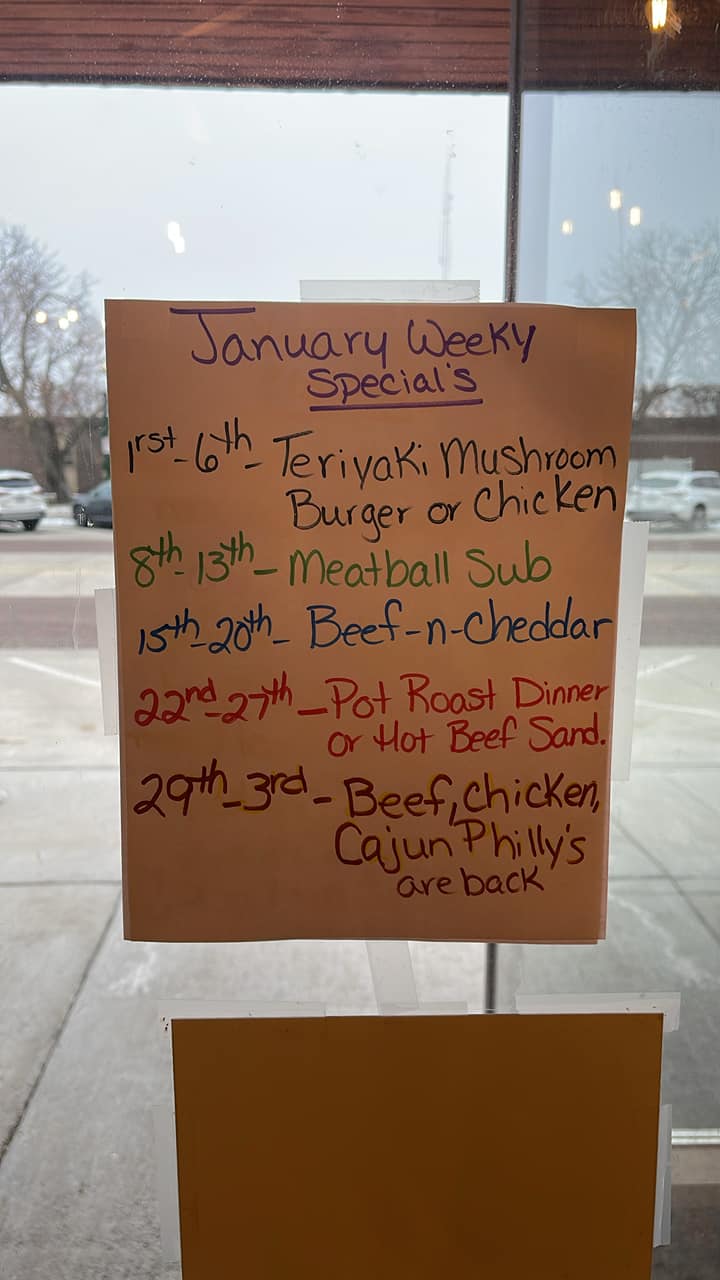 January Weeky
Special's
1rst-6th- Teriyaki Mushroom
Burger or Chicken
8th-13th- Meatball Sub
15th-20th- Beef-n-Cheddar
22nd-27th-Pot Roast Dinner
or Hot Beef Sand.
29th-3rd- Beef, Chicken,
Cajun Philly's
are back